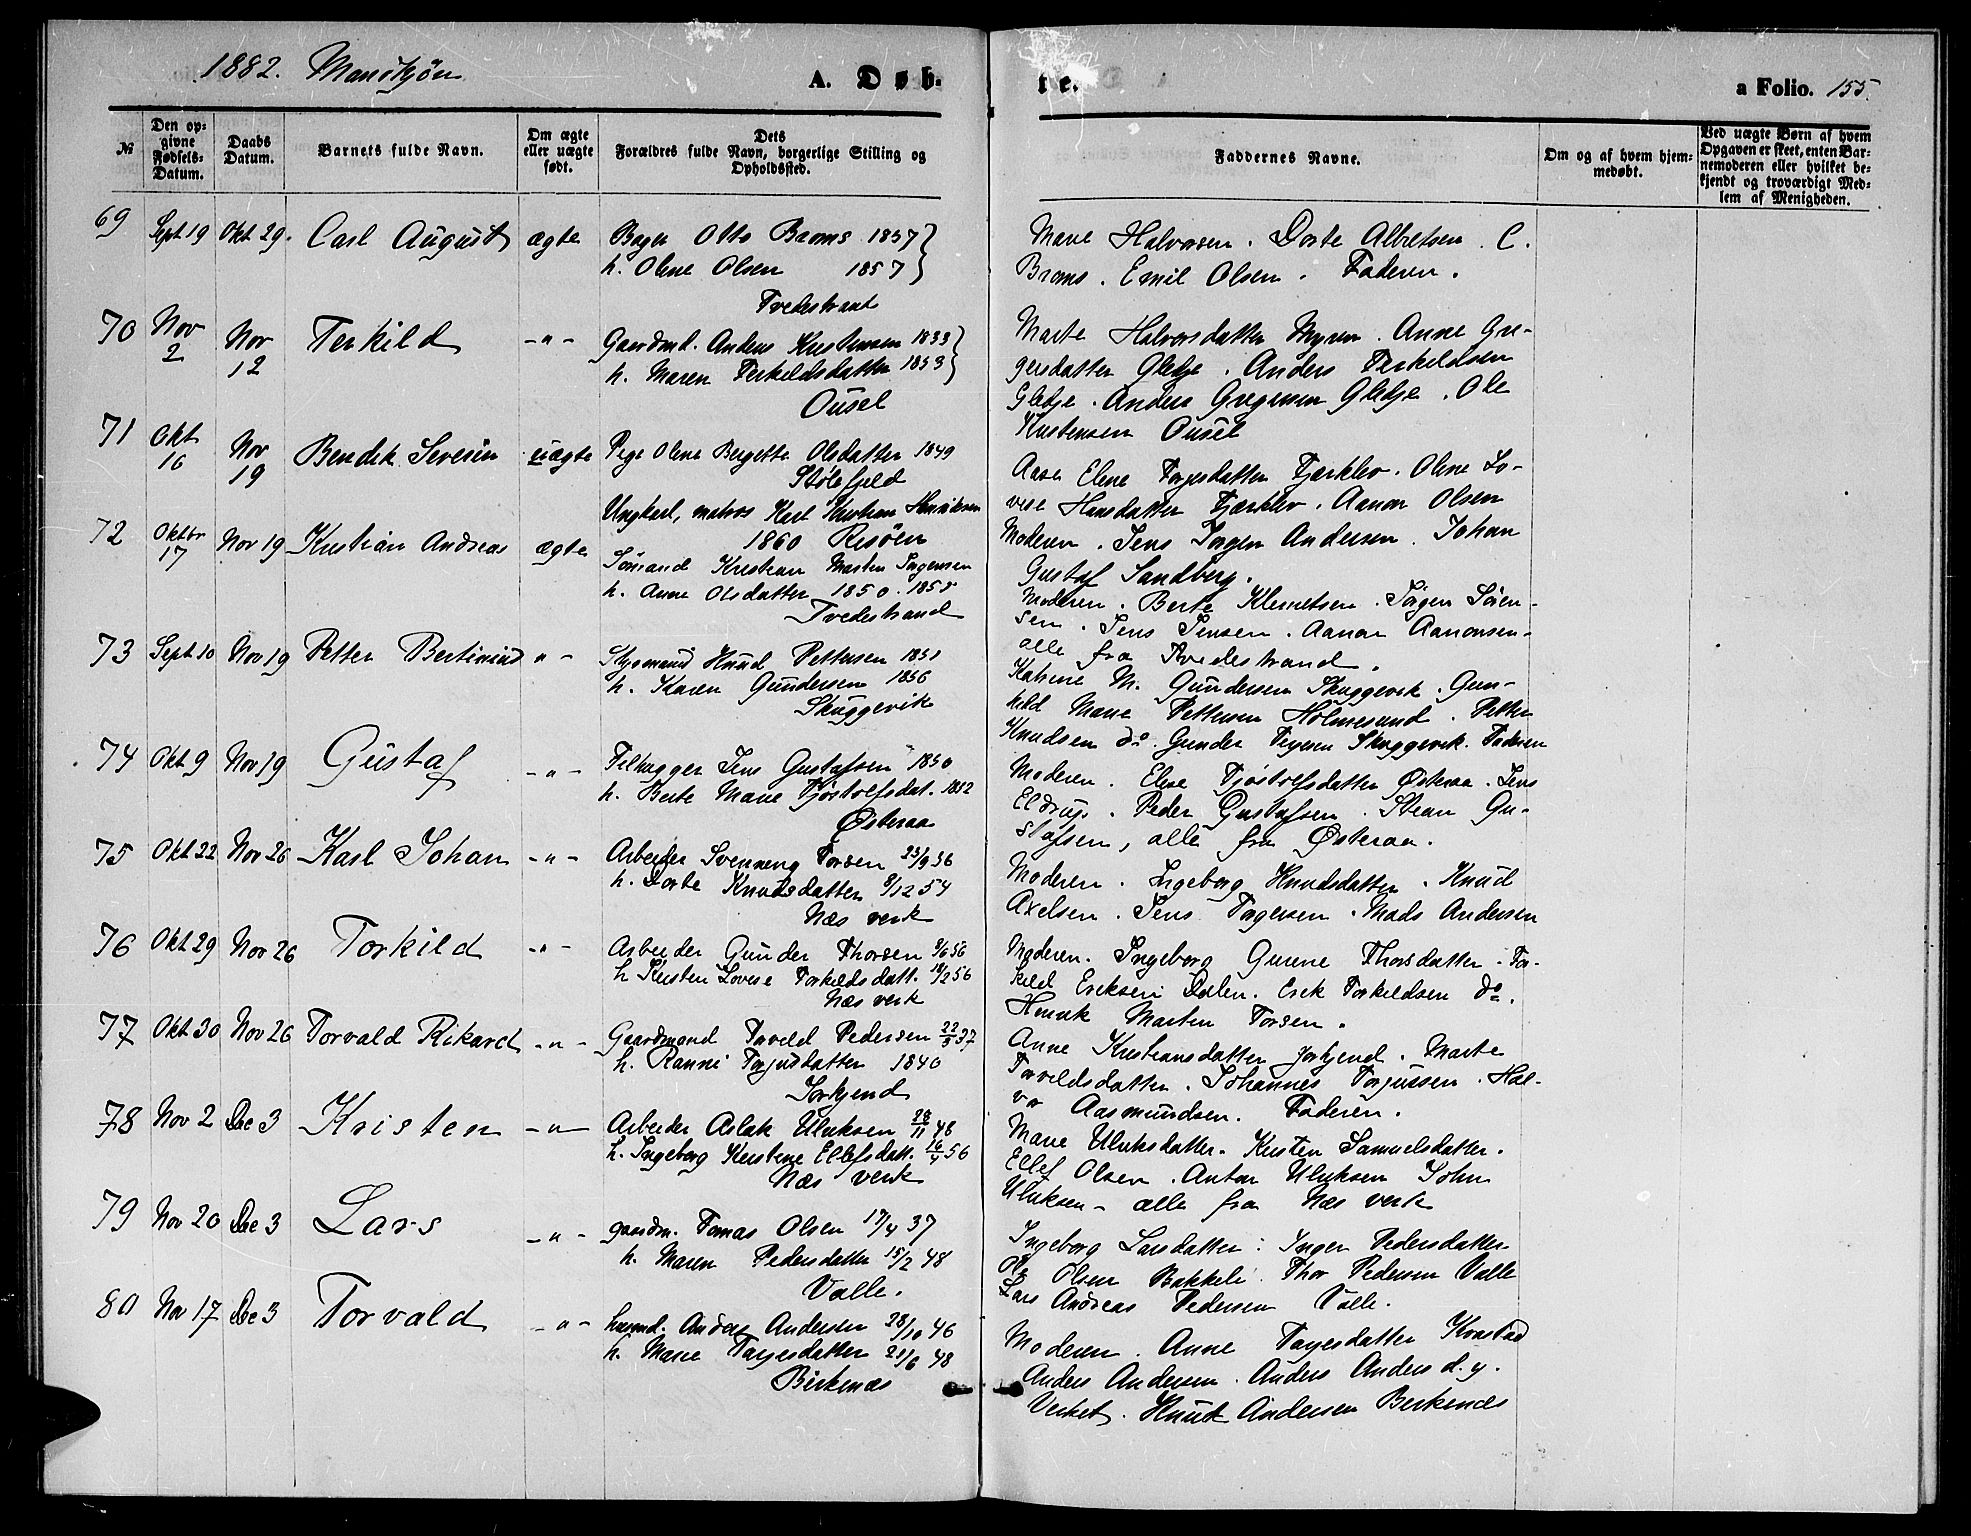 1882. Mandkjön
A. Døb-
te.
a Folio. 155.
№
Den op-
givne
Fødsels-
Datum.
Daabs
Datum.
Barnets fulde Navn.
Om ægte
eller uægte
født.
Dets
Forældres fulde Navn, borgerlige Stilling og
Opholdssted.
Faddernes Navne.
Om og af hvem hjem-
medøbt.
Ved uægte Børn af hvem
Opgaven er skeet, enten Bar-
nemoderen eller hvilket be-
kjendt og troværdigt Med-
lem af Menigheden.
69 Sept 19 Okt 29. Carl August ægte Bager Otto Broms 1857
h. Olene Olsen 1857
Tvedestrand
Marie Halvorsen. Dorte Albretsen. C.
Broms. Emil Olsen. Faderen.
70 Nov 2 Nov 12 Terkild -"- Gaardmd. Anders Kristensen 1833
h. Maren Terkildsdatter 1853
Ousel
Marte Halvorsdatter Myren. Anne Gre-
gersdatter Gletje. Anders Terkildsen
Gletje. Anders Gregersen Gletje. Ole
Kristensen Ousel
71 Okt 16 Nov 19 Bendik Severin uægte Pige Olene Bergette Olsdatter 1849
Stölefjeld
Ungkarl, matros Karl Kristian Henriksen
1860 Risöen
Aase Elene Torjesdatter Fjærklev. Oline Lo-
vise Hansdatter Fjærklev. Aanon Olsen
72 Oktbr 17 Nov 19 Kristian Andreas ægte Sømand Kristian Martin Jørgensen
h. Anne Olsdatter 1850. 1855
Tvedestrand
Moderen. Jens Jørgen Andersen. Johan
Gustaf Sandberg.
Moderen. Berte Klemetsen. Jørgen Sören-
sen. Jens Jensen. Aanon Aanonsen-
alle fra Tvedestrand.
73 Sept 10 Nov 19 Petter Bertinius "- Styrmand Knud Pettersen 1851
h. Karen Gundersen 1856
Skuggevik
Katrine M. Gundersen Skuggevik. Gun-
hild Marie Pettersen Holmesund. Petter
Knudsen do. Gunder Terjesen Skuggevik. Faderen
74 Okt 9 Nov 19 Gustaf -"- Filhugger Jens Gustafsen 1850
h. Berte Marie Tjöstolfsdat. 1852
Østeraa
Moderen. Elise Tjöstolfsdatter Østeraa. Jens
Eldrup. Peder Gustafsen. Stean Gu-
stafsen, alle fra Østeraa.
75 Okt 22 Nov 26 Karl Johan -"- Arbeider Svennung Torsen 23/9 36
h. Dorte Knudsdatter 8/12 54
Næs verk
Moderen. Ingeborg Knudsdatter. Knud
Axelsen. Jens Torgersen. Mads Andersen
76 Okt 29 Nov 26 Torkild -"- Arbeider Gunder Thorsen 9/6 56
h Kirsten Lovise Torkildsdatt. 19/2 56
Næs verk
Moderen. Ingeborg Gurine Thorsdatter. Tor-
kild Eriksen Dalen. Erik Torkildsen do.
Henrik Martin Torsen.
77 Okt 30 Nov 26 Torvald Rikard -"- Gaardmand Taveld Pedersen 22/3 37
h. Ranni Torjusdatter 1840
Jorkjend
Anne Kristiansdatter Jorkjend. Marte
Taveldsdatter. Johannes Torjussen. Hal-
vor Aasmundsen. Faderen.
78 Nov 2 Dec 3 Kristen -"- Arbeider Aslak Ulriksen 28/11 48
h. Ingeborg Kirstine Ellefsdatt. 16/4 56
Næs verk
Marie Ulriksdatter. Kirsten Samuelsdatter.
Ellef Olsen. Anton Ulriksen John
Ulriksen - alle fra Næs verk
79 Nov 20 Dec 3 Lars -"- gaardm. Tomas Olsen 17/4 37
h. Maren Pedersdatter 15/2 48
Valle.
Ingeborg Larsdatter: Inger Pedersdatter
Ole Olsen Bakkeli. Thor Pedersen Valle
Lars Andreas Pedersen Valle.
80 Nov 17 Dec 3 Torvald -"- husmd. Anders Andersen 28/10 46
h. Marie Tarjesdatter 21/6 48
Birkenæs
Moderen. Anne Tarjesdatter Kvastad
Anders Andersen. Anders Anders d. y.
Verket. Knut Andersen Berkenæs